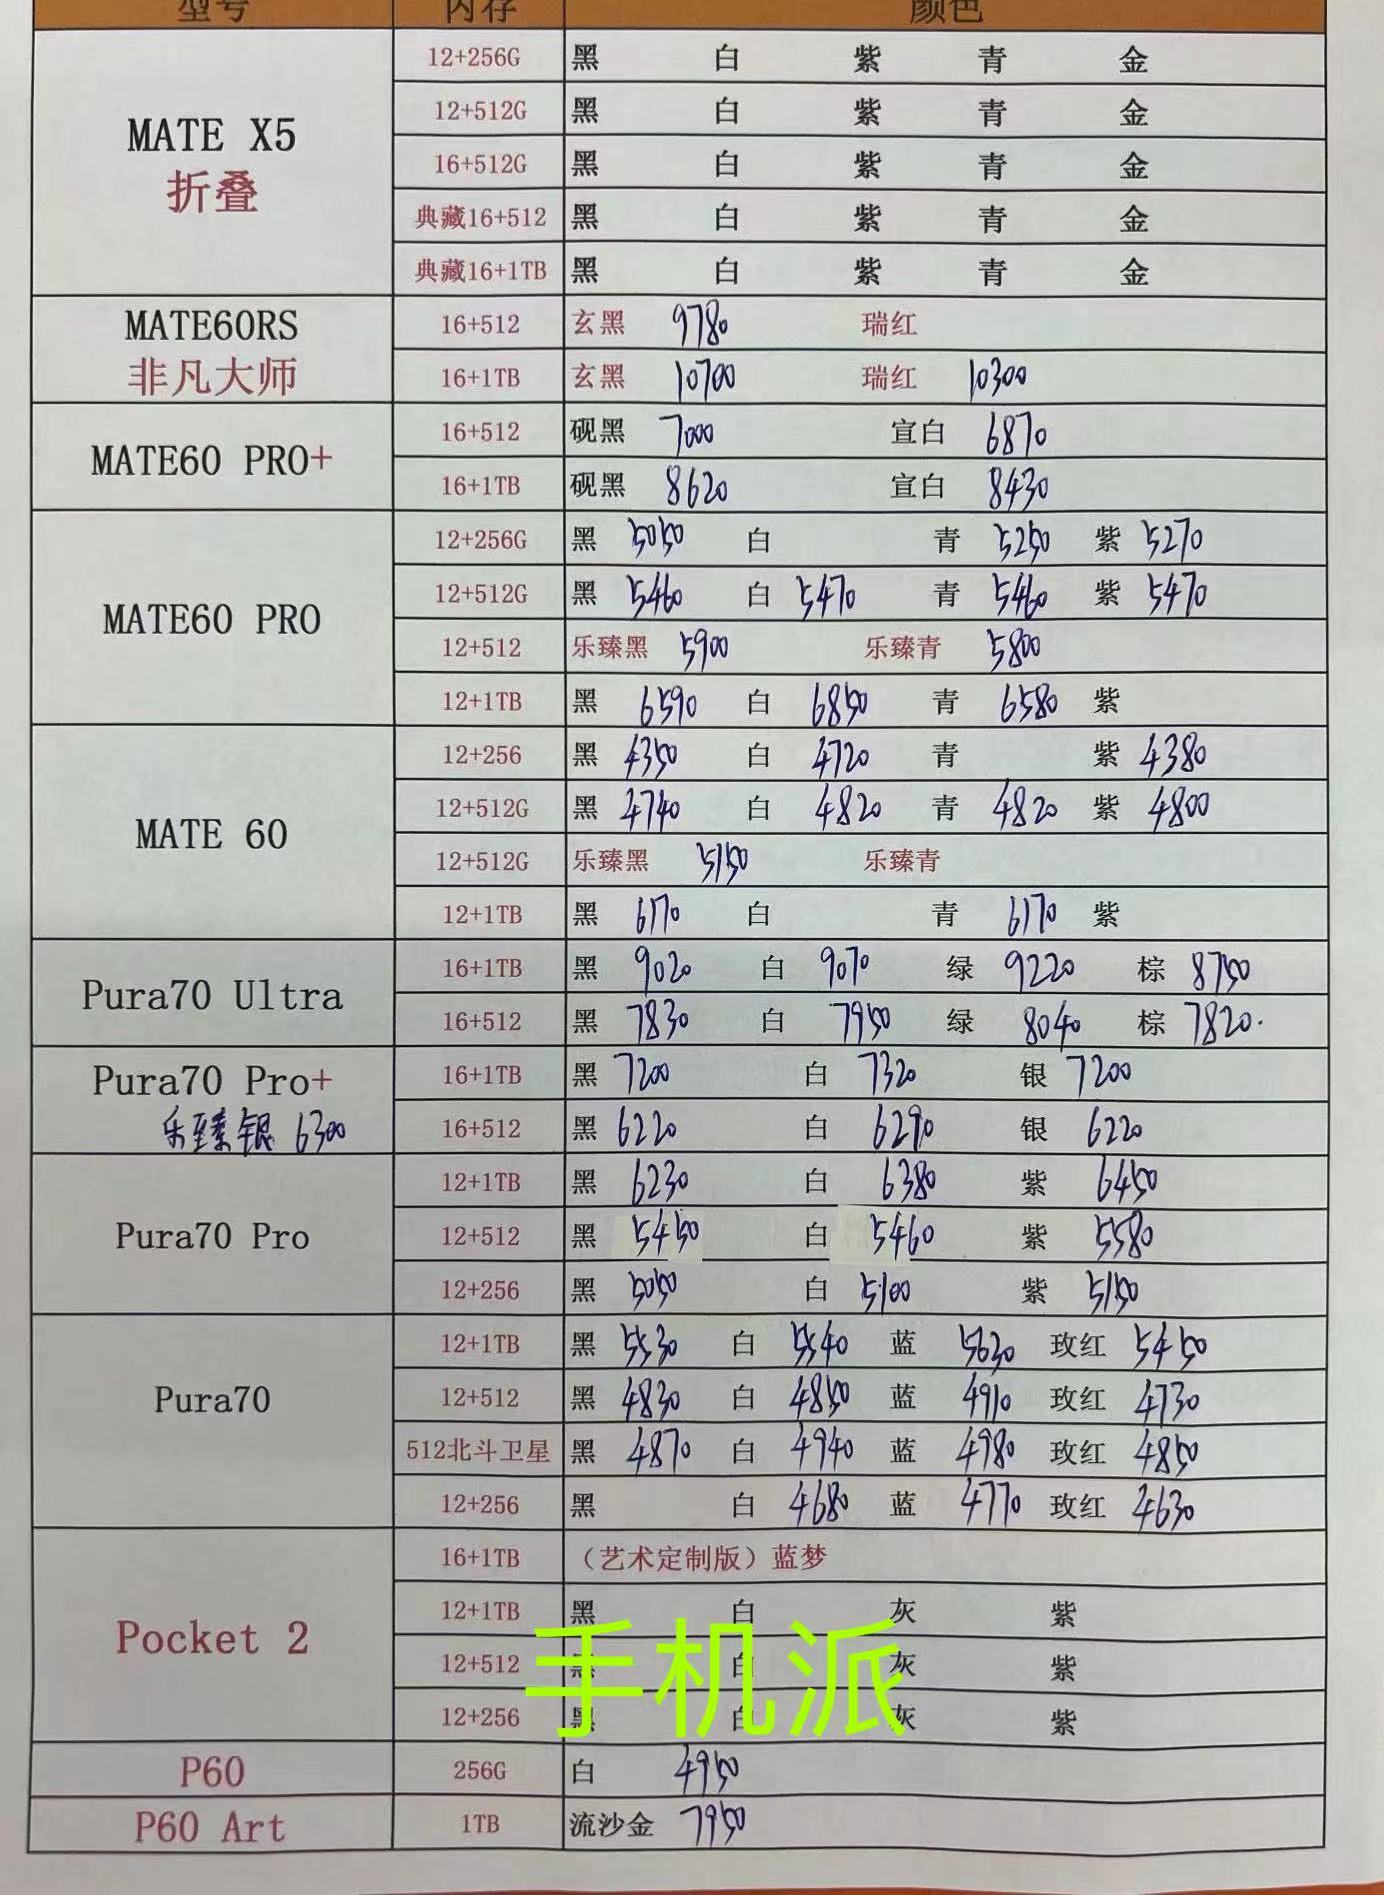 型号 内存 颜色
MATE X5
折叠
12+256G 黑 白 紫 青 金
12+512G 黑 白 紫 青 金
16+512G 黑 白 紫 青 金
典藏16+512 黑 白 紫 青 金
典藏16+1TB 黑 白 紫 青 金
MATE60RS
非凡大师
16+512 玄黑 9780 瑞红
16+1TB 玄黑 10700 瑞红 10300
MATE60 PRO+
16+512 砚黑 7000 宣白 6870
16+1TB 砚黑 8620 宣白 8430
MATE60 PRO
12+256G 黑 5050 白 青 5250 紫 5270
12+512G 黑 5460 白 5470 青 5460 紫 5470
12+512 乐臻黑 5900 乐臻青 5800
12+1TB 黑 6590 白 6850 青 6580 紫
MATE 60
12+256 黑 4350 白 4720 青 紫 4380
12+512G 黑 4740 白 4820 青 4820 紫 4800
12+512G 乐臻黑 5150 乐臻青
12+1TB 黑 6170 白 青 6170 紫
Pura70 Ultra
16+1TB 黑 9020 白 9070 绿 9220 棕 8750
16+512 黑 7830 白 7950 绿 8040 棕 7820.
Pura70 Pro+
乐臻银 6300
16+1TB 黑 7200 白 7320 银 7200
16+512 黑 6220 白 6290 银 6220
Pura70 Pro
12+1TB 黑 6230 白 6380 紫 6450
12+512 黑 5450 白 5460 紫 5580
12+256 黑 5050 白 5100 紫 5150
Pura70
12+1TB 黑 5530 白 5540 蓝 5630 玫红 5450
12+512 黑 4830 白 4850 蓝 4910 玫红 4730
512北斗卫星 黑 4870 白 4940 蓝 4980 玫红 4850
12+256 黑 白 4680 蓝 4770 玫红 4630
Pocket 2
16+1TB （艺术定制版）蓝梦
12+1TB 黑 白 灰 紫
12+512 黑 白 灰 紫
12+256 黑 白 灰 紫
手机派
P60 256G 白 4950
P60 Art 1TB 流沙金 7950